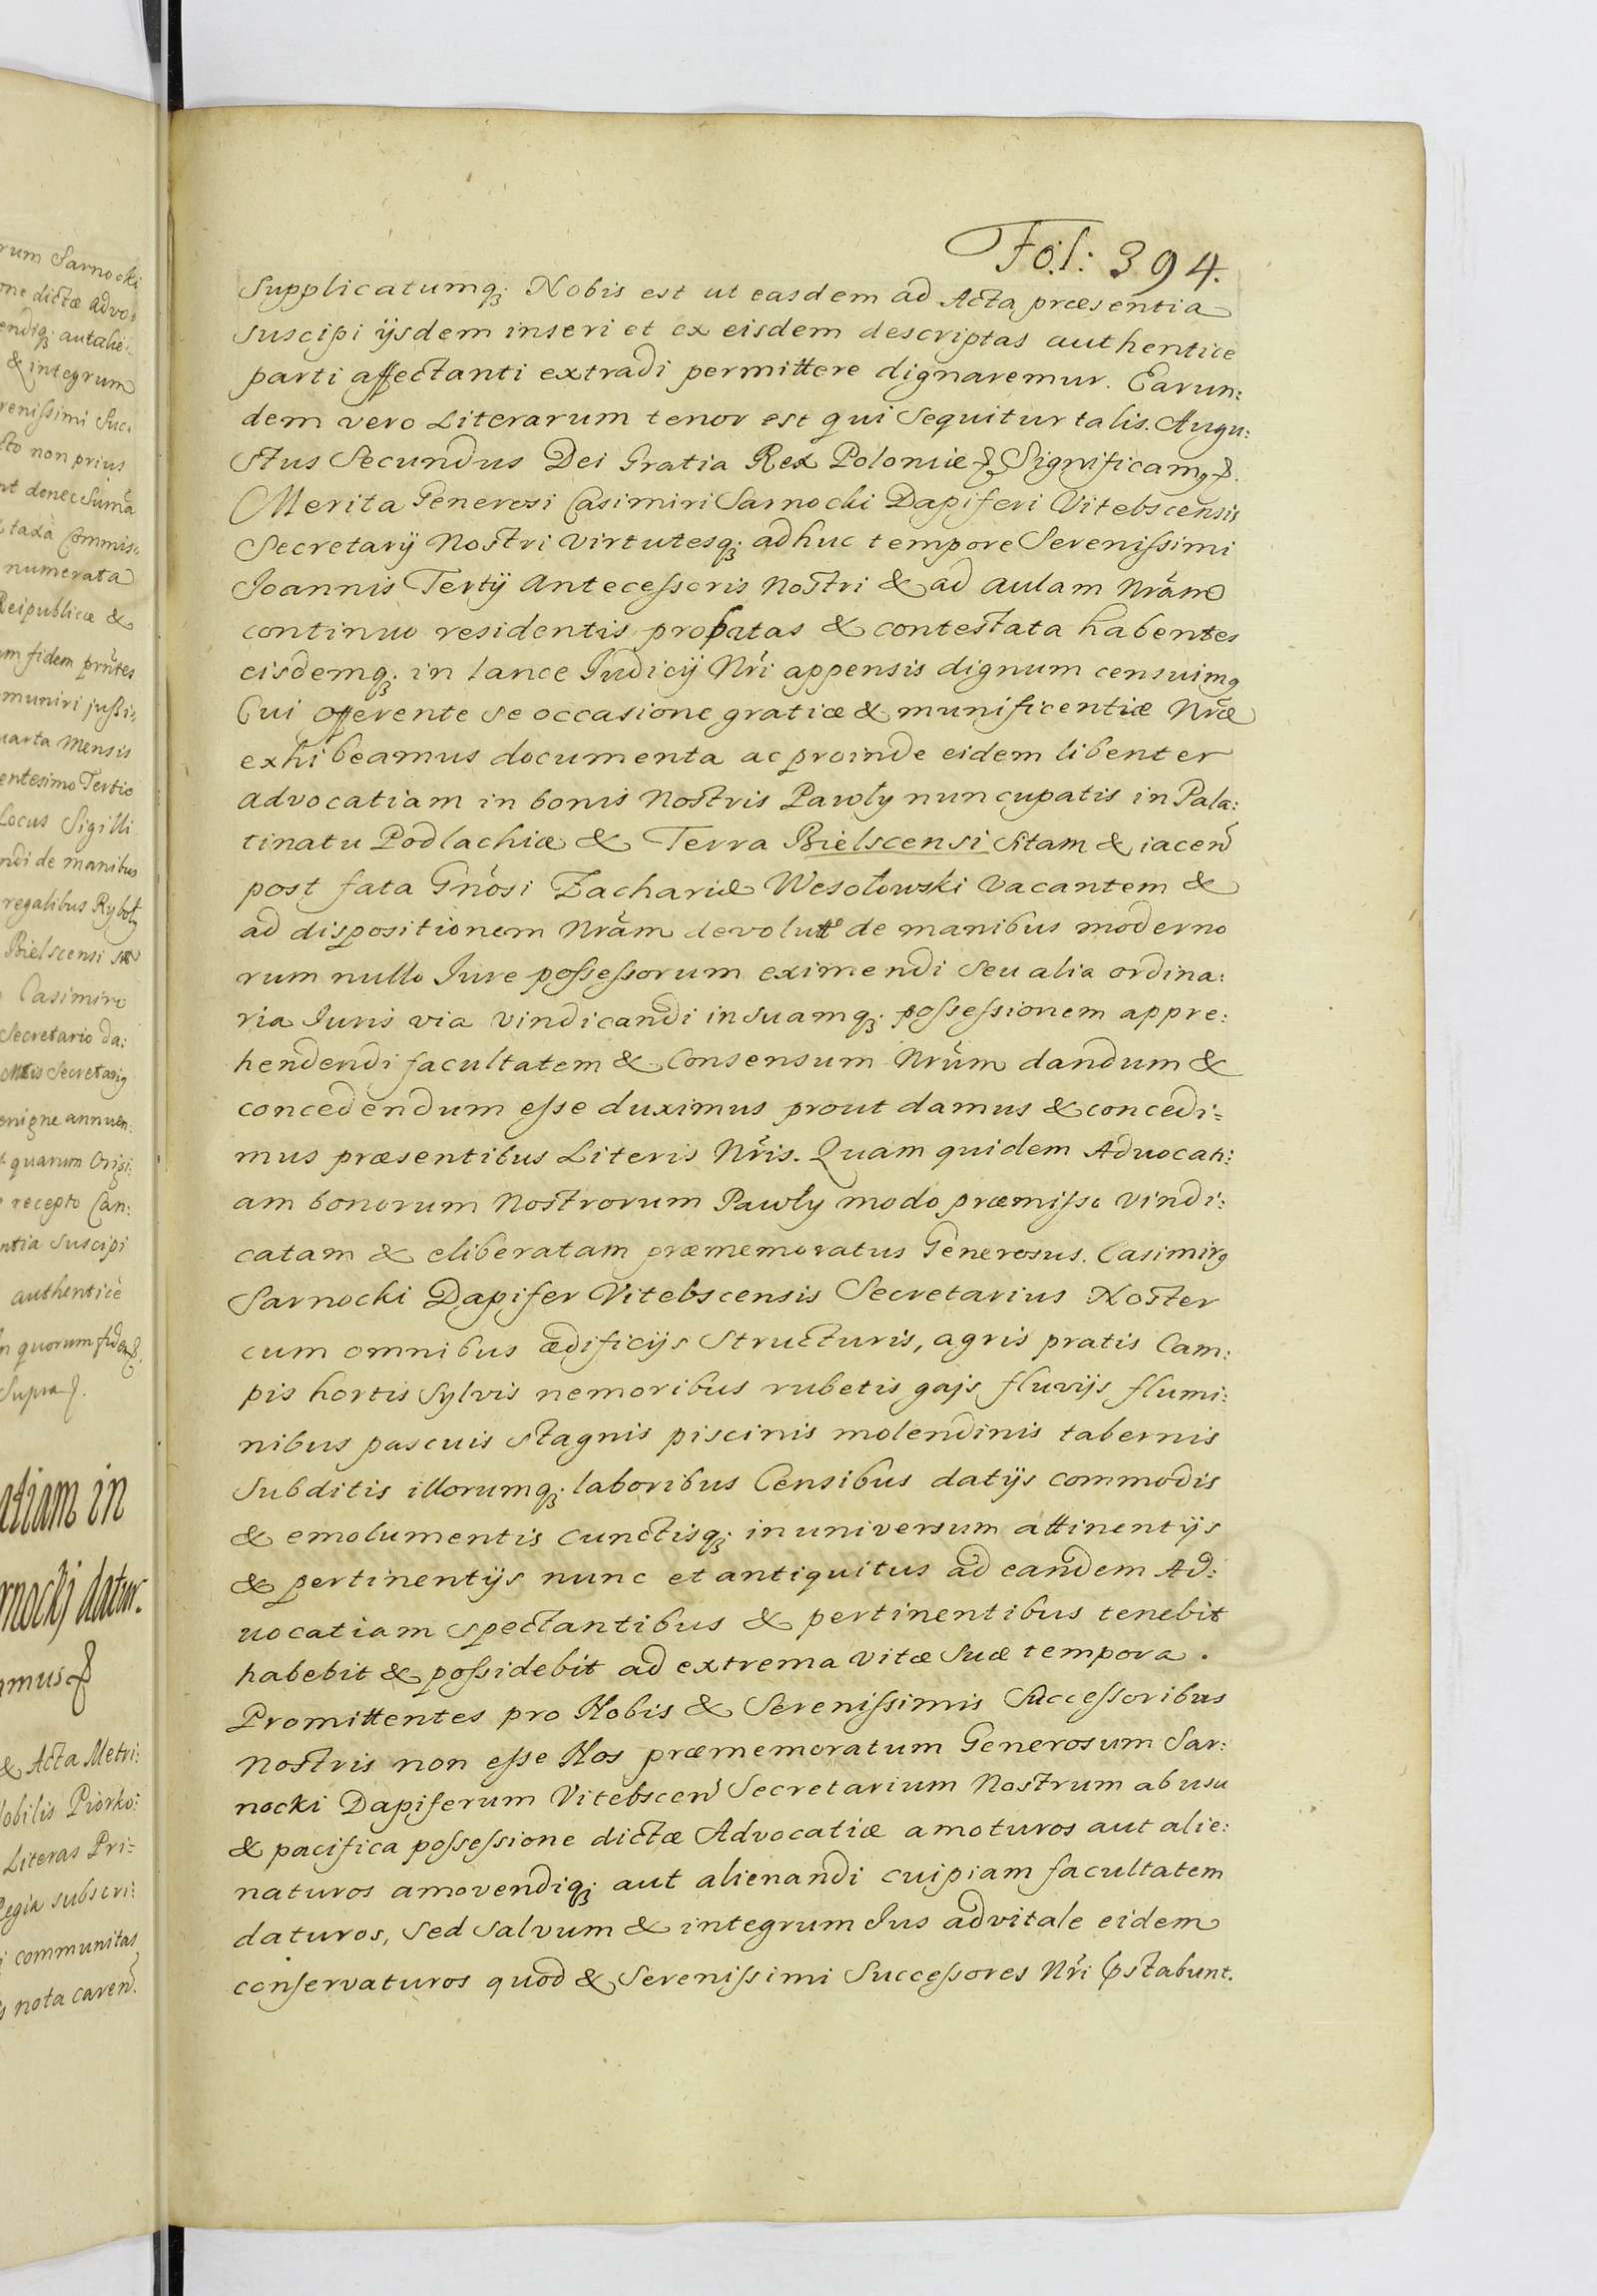 Fol: 394.
Supplicatumq; Nobis est ut easdem ad Acta præsentia
suscipi ijsdem inseri et ex eisdem descriptas authentice
parti affectanti extradi permittere dignaremur. Earun:
dem vero Literarum tenor est qui sequitur talis. Augu:
stus Secundus Dei Gratia Rex Poloniæ & Significamq &.
Merita Generosi Casimiri Sarnocki Dapiferi Vitebscensis
Secretarij Nostri virtutesq; adhuc tempore Serenissimi
Joannis Tertij Antecessoris Nostri & ad aulam Nrãm
continuo residentis probatas & contestata habentes
eisdemq; in lance Judicij Nri appensis dignum censuimq
Cui offerente se occasione gratiæ & munificentiæ Nræ
exhibeamus documenta ac proinde eidem libenter
advocatiam in bonis Nostris Pawły nuncupatis in Pala:
tinatu Podlachiæ & Terra Bielscensi sitam & iacen
post fata Gnosi Zachariæ Wesołowski vacantem &
ad dispositionem Nrãm devolutt de manibus moderno
rum nullo Jure possessorum eximendi seu alia ordina:
ria Juris via vindicandi in suamq; possessionem appre:
hendendi facultatem & Consensum Nrũm dandum &
concedendum esse duximus prout damus & concedi:
mus præsentibus Literis Nris. Quam quidem Advocati:
am bonorum Nostrorum Pawły modo præmisso vindi:
catam & eliberatam præmemoratus Generosus. Casimirq
Sarnocki Dapifer Vitebscensis Secretarius Noster
cum omnibus ædificijs structuris, agris pratis Cam:
pis hortis sylvis nemoribus rubetis gajs fluvijs flumi:
nibus pascuis stagnis piscinis molendinis tabernis
Subditis illorumq; laboribus Censibus datijs commodis
& emolumentis cunctisq; in universum attinentijs
& pertinentijs nunc et antiquitus ad eandem Ad:
uocatiam spectantibus & pertinentibus tenebit
habebit & possidebit ad extrema vitæ suæ tempora.
Promittentes pro Nobis & Serenissimis Successoribus
Nostris non esse Nos præmemoratum Generosum Sar:
nocki Dapiferum Vitebscen Secretarium Nostrum ab usu
& pacifica possessione dictæ Advocatiæ amoturos aut alie:
naturos amovendiq; aut alienandi cuipiam facultatem
daturos, sed salvum & integrum Jus advitale eidem
conservaturos quod & Serenissimi Successores Nri pstabunt.
rum Sarnocki
one dictæ advo:
endiq; aut alie:
& integrum
renissimi Suc:
non prius
donec Suma
taxa Commis:
numerata
Reipublicæ &
m fidem prntes
muniri jussi:
uarta Mensis
entesimo Tertio
Locus Sigilli
ndi de manibus
regalibus Ryboły
Bielscensi
Casimiro
Secretario da:
Secretarij
enigne annuen:
quarum Origi:
recepto Can:
ntia suscipi
authenticè
n quorum fidem &.
Supra &.
atiam in
rnockj datur.
amus &
& Acta Metri:
Nobilis Piorko:
Literas Pri:
Regia subscri:
communitas
s nota caren.